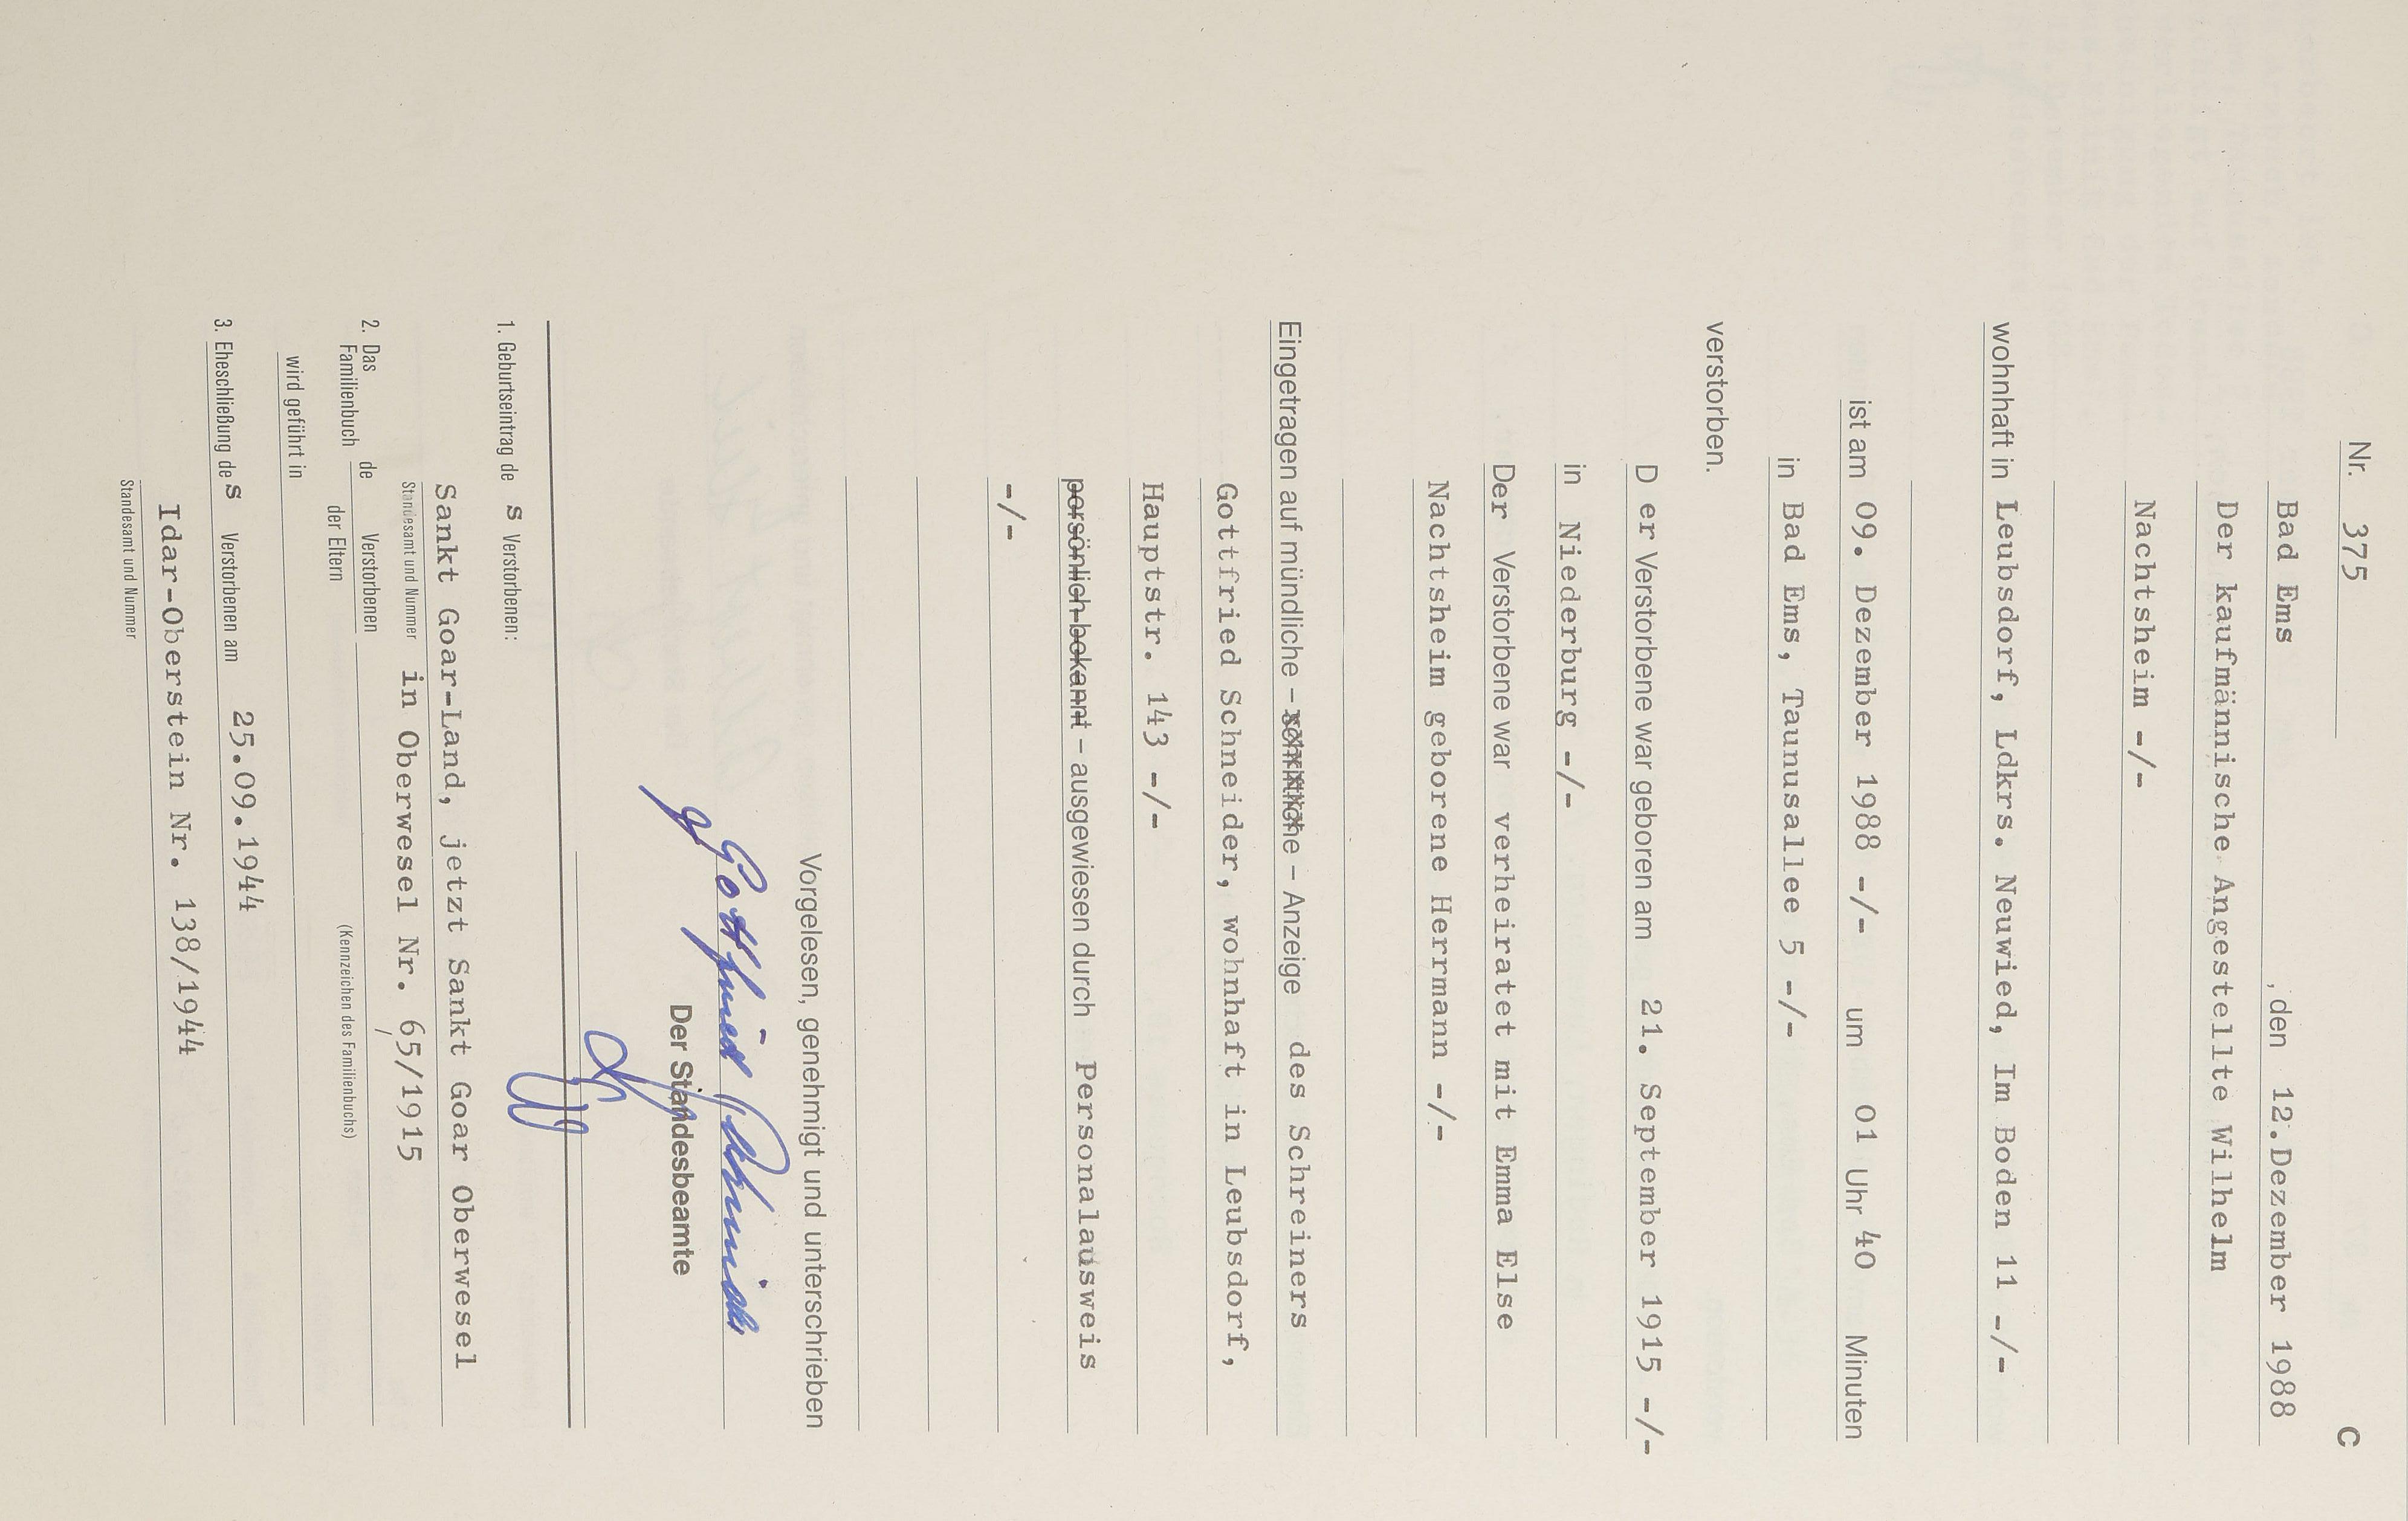 Nr. 375 C
Bad Ems , den 12.Dezember 1988
Der kaufmännische Angestellte Wilhelm
Nachtsheim -/-
wohnhaft in Leubsdorf, Ldkrs. Neuwied, Im Boden 11 -/-
ist am 09. Dezember 1988 -/- um 01 Uhr 40 Minuten
in Bad Ems, Taunusallee 5 -/-
verstorben.
D er Verstorbene war geboren am 21. September 1915 -/-
in Niederburg -/-
Der Verstorbene war verheiratet mit Emma Else
Nachtsheim geborene Herrmann -/-
Eingetragen auf mündliche – schriftliche – Anzeige des Schreiners
Gottfried Schneider, wohnhaft in Leubsdorf,
Hauptstr. 143 -/-
persönlich bekannt – ausgewiesen durch Personalausweis
-/-
Vorgelesen, genehmigt und unterschrieben
Gottfried Schneider
Der Standesbeamte
1. Geburtseintrag de s Verstorbenen:
Sankt Goar-Land, jetzt Sankt Goar Oberwesel
Standesamt und Nummer in Oberwesel Nr. 65/1915
2. Das Familienbuch de Verstorbenen
der Eltern (Kennzeichen des Familienbuchs)
wird geführt in
3. Eheschließung des Verstorbenen am 25.09.1944
Idar-Oberstein Nr. 138/1944
Standesamt und Nummer